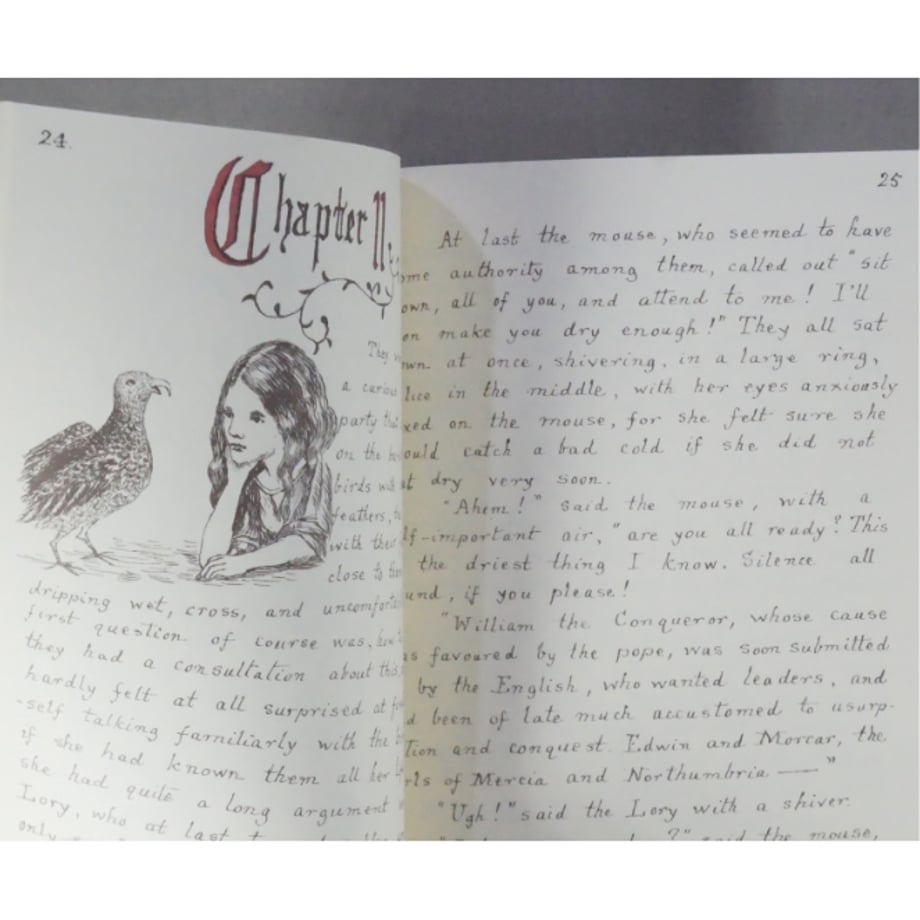 24.
Chapter II
They w
a curiou
party tha
on the b
birds with
feathers, t
with their
close to the
dripping wet, cross, and uncomforta
first question of course was, how t
they had a consultation about this
hardly felt at all surprised at f
-self talking familiarly with the b
if she had known them all her l
she had quite a long argument
Lory, who at last t
only
25
At last the mouse, who seemed to have
me authority among them, called out "sit
own, all of you, and attend to me! I'll
on make you dry enough!" They all sat
wn at once, shivering, in a large ring,
lice in the middle, with her eyes anxiously
xed on the mouse, for she felt sure she
ould catch a bad cold if she did not
t dry very soon.
"Ahem!" said the mouse, with a
lf-important air, "are you all ready? This
the driest thing I know. Silence all
und, if you please!
"William the Conqueror, whose cause
s favoured by the pope, was soon submitted
by the English, who wanted leaders, and
d been of late much accustomed to usurp-
tion and conquest. Edwin and Morcar, the
rls of Mercia and Northumbria —"
"Ugh!" said the Lory with a shiver.
?" said the mouse,